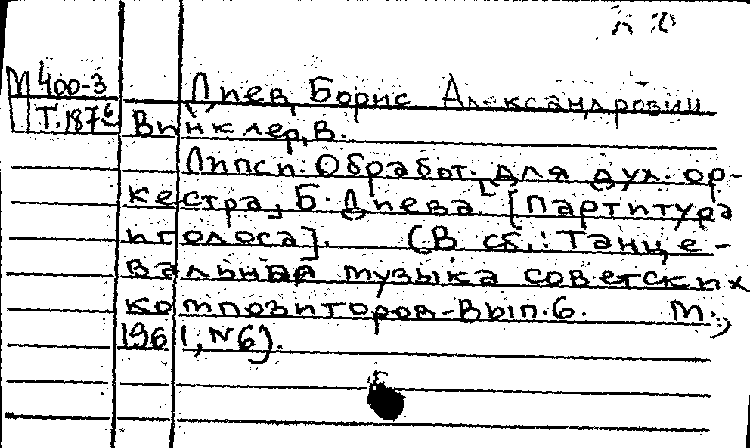 М 400-3
Т.187
Диев, Борис Александрович
Винклер, В.
Липси. Обработ. для дух. ор-
кестра, Б. Диева. [Партитура
и голоса]. (В сб.: Танце-
вальная музыка советских
композиторов - Вып. 6. М.,
1961, №6).